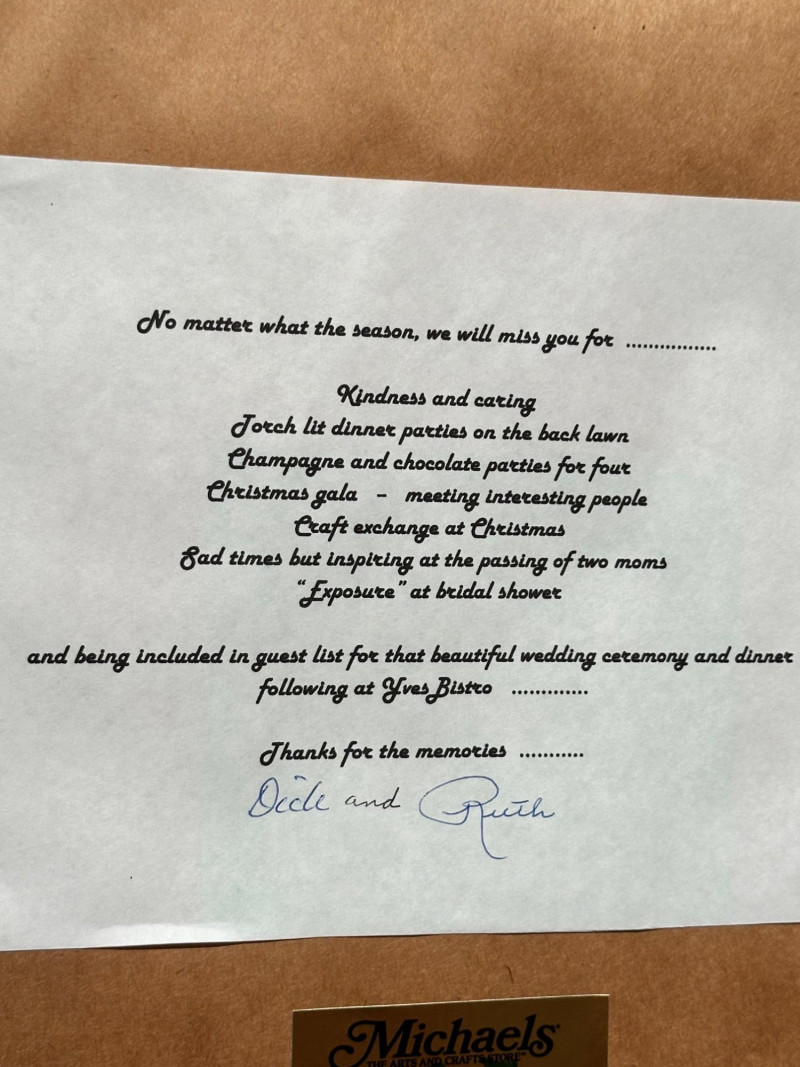 No matter what the season, we will miss you for ................
Kindness and caring
Torch lit dinner parties on the back lawn
Champagne and chocolate parties for four
Christmas gala - meeting interesting people
Craft exchange at Christmas
Sad times but inspiring at the passing of two moms
“Exposure” at bridal shower
and being included in guest list for that beautiful wedding ceremony and dinner
following at Yves Bistro .............
Thanks for the memories ...........
Dick and Ruth
Michaels
THE ARTS AND CRAFTS STORE